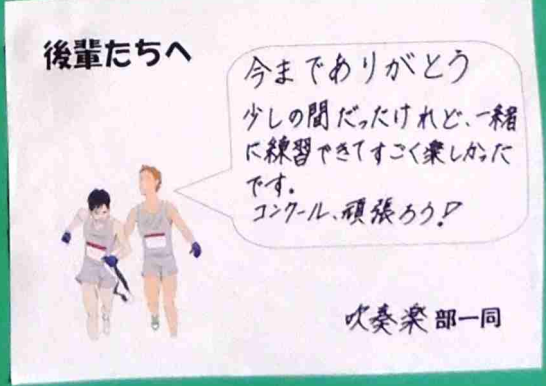 後輩たちへ
今までありがとう
少しの間だったけれど、一緒
に練習できてすごく楽しかった
です。
コンクール、頑張ろう!
吹奏楽部一同